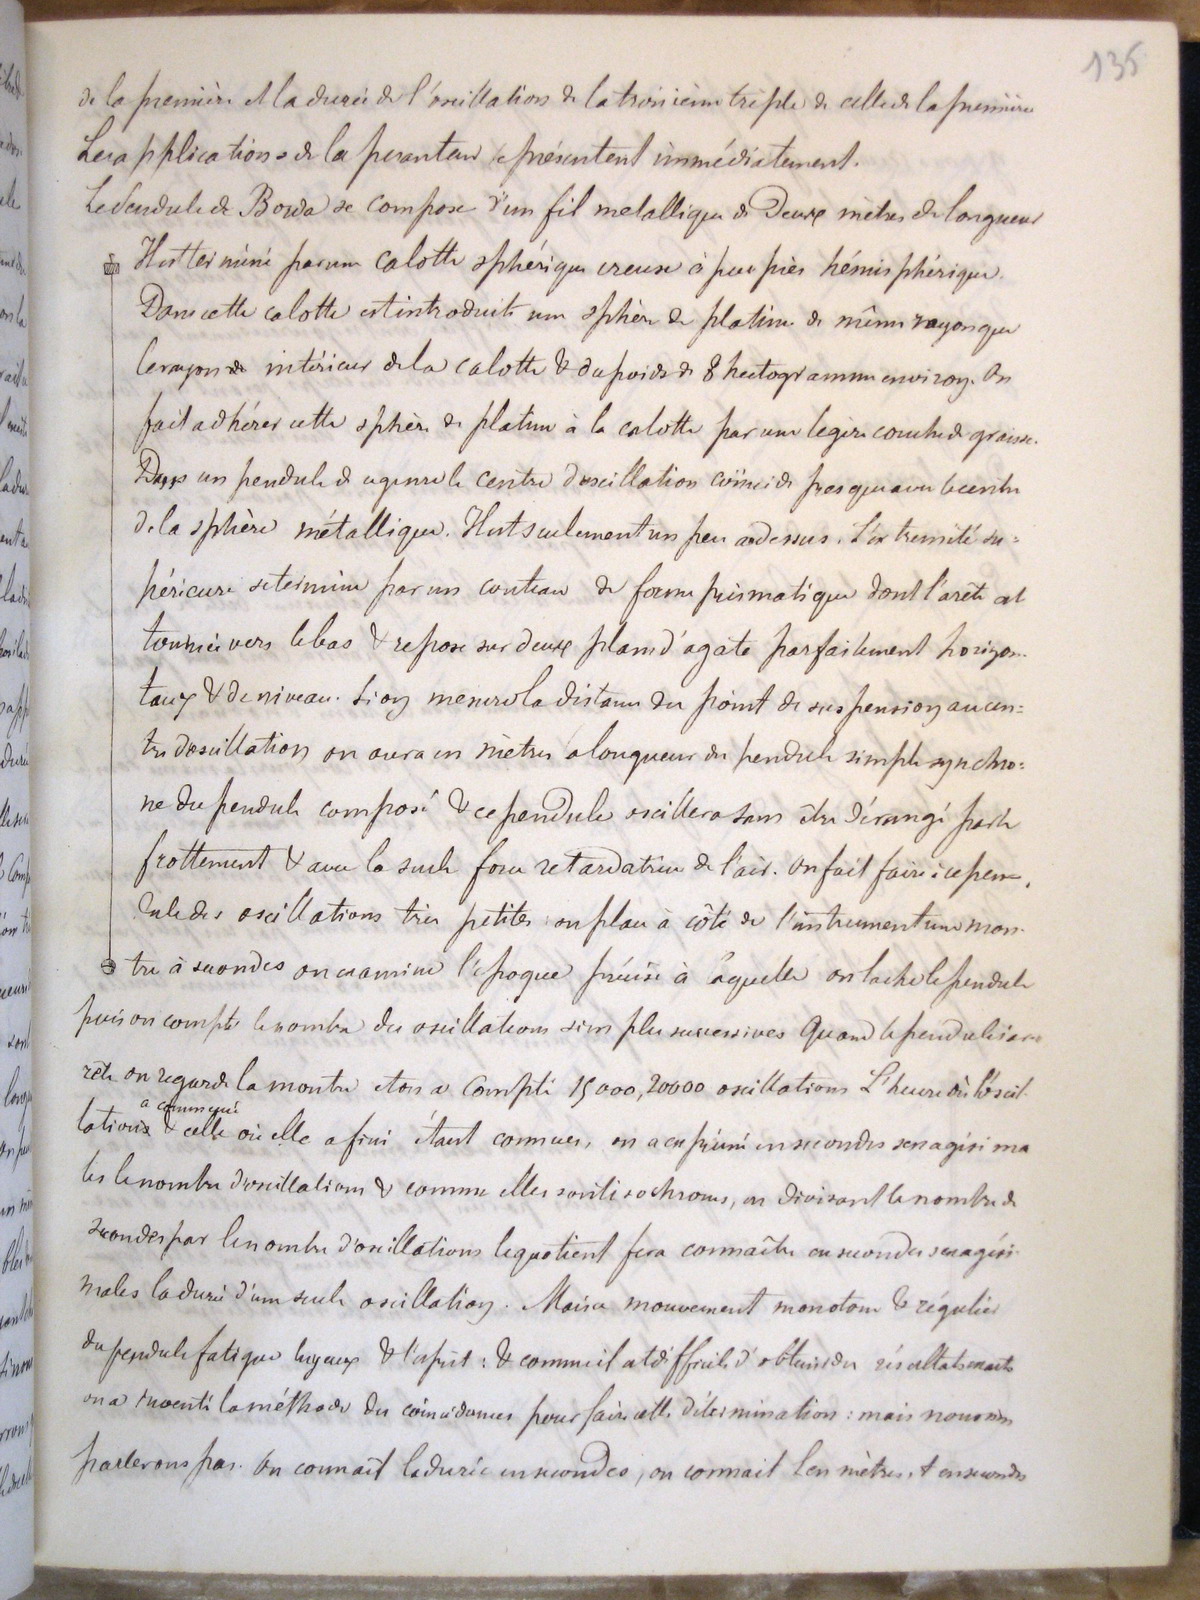 135
de la première et la durée de l'oscillation de la troisième triple de celle de la première
Les applications de la pesanteur se présentent immédiatement.
Le Pendule de Borda se compose d'un fil metallique de Deux mètres de longueur
Il est terminé par une calotte sphérique creuse à peu près hémisphérique.
Dans cette calotte est introduite une sphère de platine de même rayon que
le rayon de intérieur de la calotte & du poids de 8 hectogramme environ. On
fait adhérer cette sphère de platine à la calotte par une legère couche de graisse.
Dans un pendule de ce genre le centre d'oscillation coïncide presque avec le centre
de la sphère métallique. Il est seulement un peu au dessus. L'extremité su=
périeure se termine par un couteau de forme prismatique dont l'arête est
tournée vers le bas & repose sur deux plans d'agate parfaitement horizon-
taux & de niveau. Si on mesure la distance du point de suspension au cen=
tre d'oscillation on aura en mètres la longueur du pendule simple synchro=
ne du pendule composé & ce pendule oscillera sans être dérangé par le
frottement & avec la seule force retardatrice de l'air. On fait faire à ce pen-
dule des oscillations très petites on place à côté de l'instrument une mon-
tre à secondes on examine l'époque précise à laquelle on lache le pendule
puis on compte le nombre des oscillations simples successives Quand le pendule s'ar-
rête on regarde la montre et on a compté 15000, 20000 oscillations L'heure où l'oscil-
a commencé
lations & celle où elle a fini étant connues, on a exprimé en secondes sexagésima
les le nombre d'oscillations & comme elles sont isochrones, en divisant le nombre de
secondes par le nombre d'oscillations le quotient fera connaître en secondes sexagési-
males la durée d'une seule oscillation. Mais ce mouvement monotone & régulier
du pendule fatigue les yeux & l'esprit : & comme il est difficile d'obtenir des résultats exacts
on a inventé la méthode des coïncidences pour faire cette détermination : mais nous n'en
parlerons pas. On connaît la durée en secondes, on connait l en mètres, t en secondes